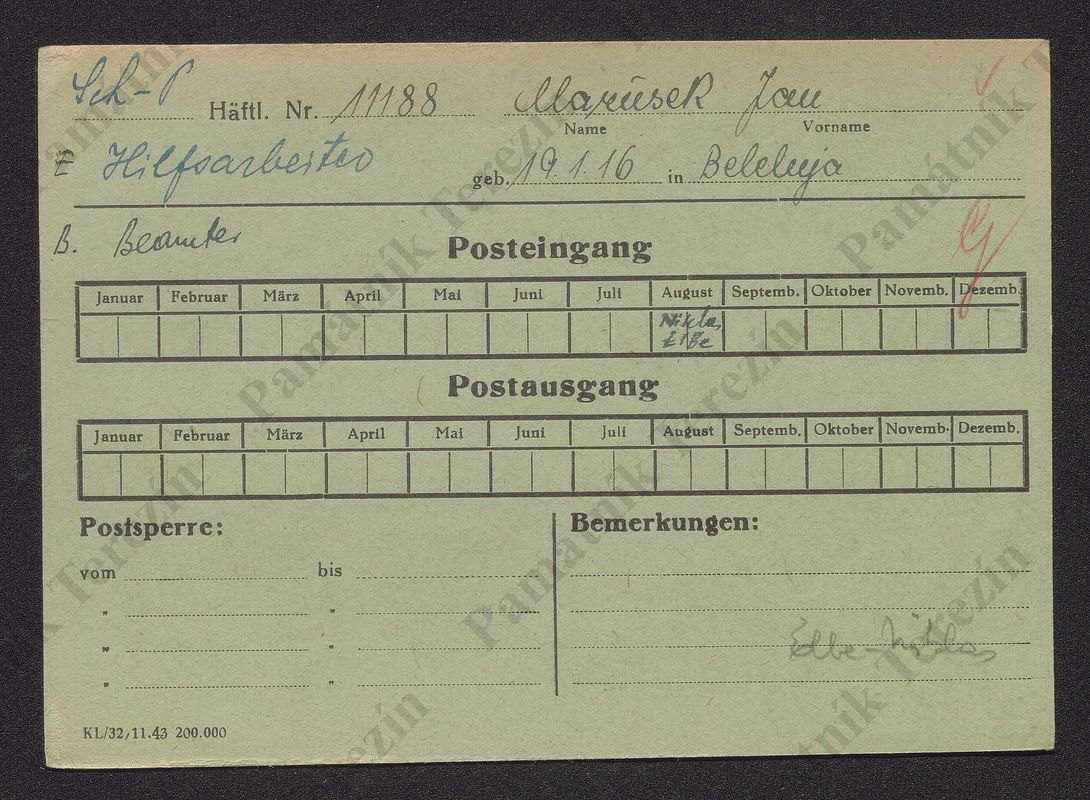 Sch-P Häftl. Nr. 11188 Marúsek Jan
Name Vorname
E Hilfsarbeiter geb. 19.1.16 in Beleluja
B. Beamter
Posteingang
Januar Februar März April Mai Juni Juli August Septemb. Oktober Novemb. Dezemb.
Niklas
Elbe
Postausgang
Januar Februar März April Mai Juni Juli August Septemb. Oktober Novemb. Dezemb.
Postsperre: Bemerkungen:
vom bis
" "
" "
Elbe-Niklas
" "
KL/32, 11.43 200.000
Památník Terezín